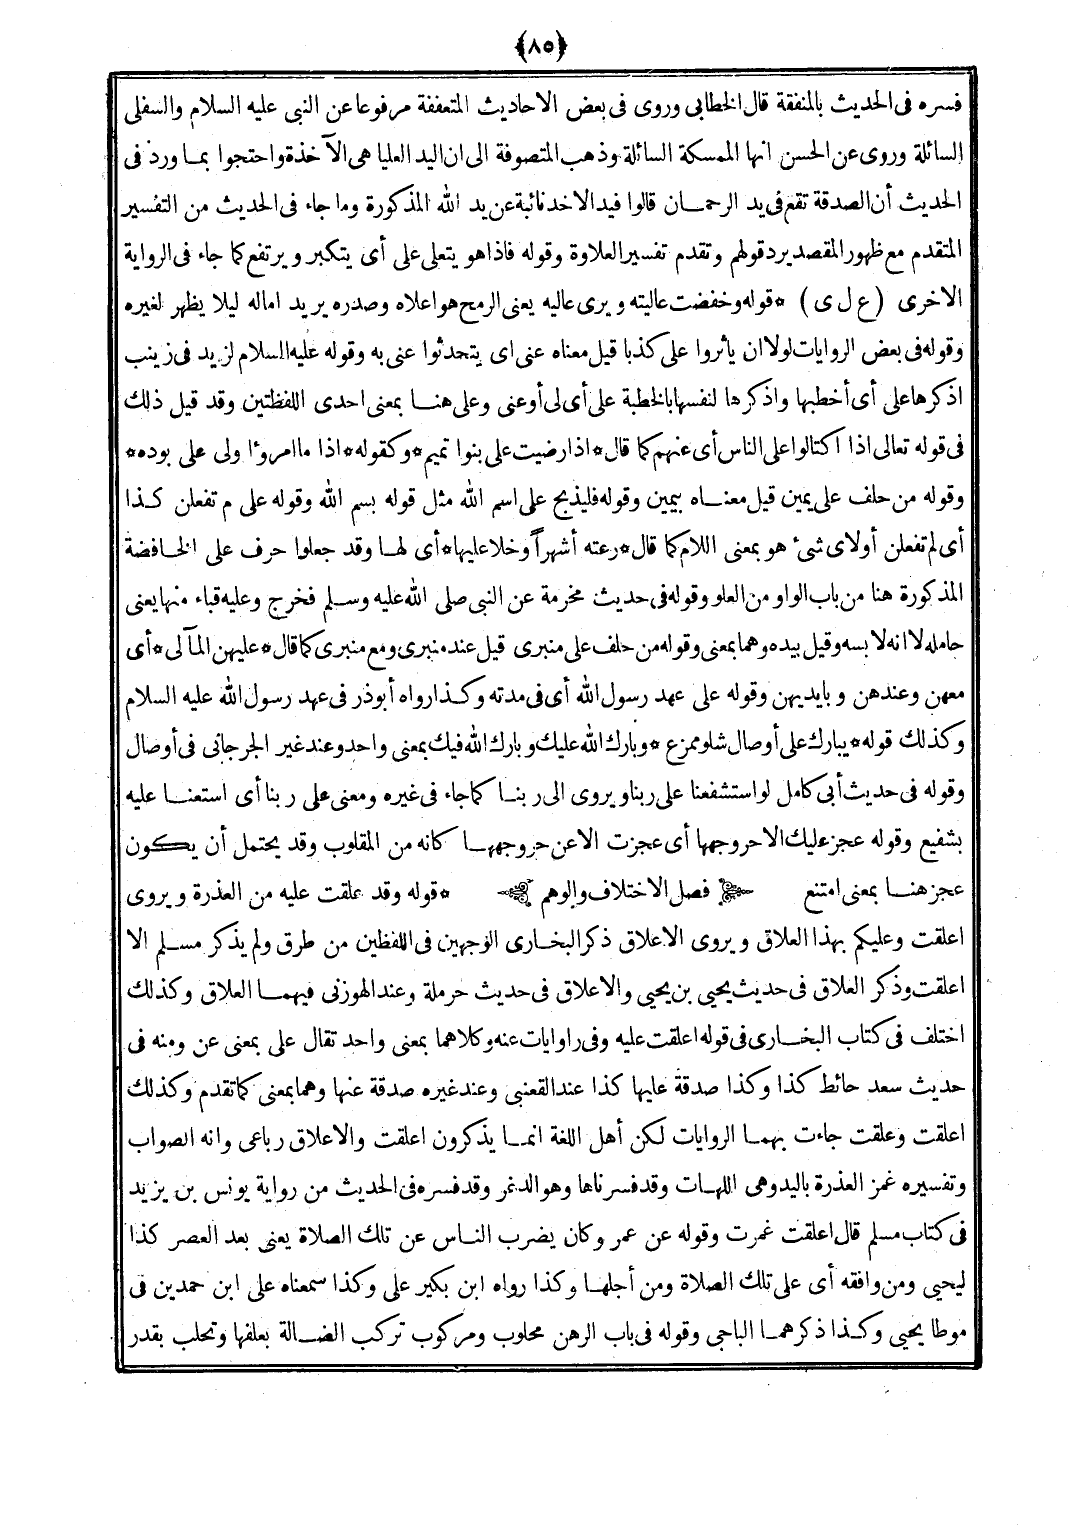 ﴿٨٥﴾
فسره فى الحديث بالمنفقة قال الخطابى وروى فى بعض الاحاديث المتعففة مرفوعا عن النبى عليه السلام والسفلى
السائلة وروى عن الحسن انها الممسكة السائلة وذهب المتصوفة الى ان اليد العليا هى الآخذة واحتجوا بما ورد فى
الحديث أن الصدقة تقع فى يد الرحمان قالوا فيد الاخذ نائبة عن يد الله المذكورة وما جاء فى الحديث من التفسير
المتقدم مع ظهور المقصد يرد قولهم وتقدم تفسير العلاوة وقوله فاذا هو يتعلى على أى يتكبر ويرتفع كما جاء فى الرواية
الاخرى (ع ل ى) *قوله وخفضت عاليته ويرى عاليه يعنى الرمح هو اعلاه وصدره يريد اماله ليلا يظهر لغيره
وقوله فى بعض الروايات لولا ان يأثروا على كذبا قيل معناه عنى اى يتحدثوا عنى به وقوله عليه السلام لزيد فى زينب
اذكرها على أى أخطبها واذكرها لنفسها بالخطبة على أى لى أو عنى وعلى هنا بمعنى احدى اللفظتين وقد قيل ذلك
فى قوله تعالى اذا اكتالوا على الناس أى عنهم كما قال*اذا رضيت على بنوا تميم*وكقوله*اذا ما امروءا ولى على بوده*
وقوله من حلف على يمين قيل معناه بيمين وقوله فليذبح على اسم الله مثل قوله بسم الله وقوله على م تفعلن كذا
أى لم تفعلن أولاى شىء هو بمعنى اللام كما قال*رعته أشهراً وخلا عليها*أى لها وقد جعلوا حرف على الخافضة
المذكورة هنا من باب الواو من العلو وقوله فى حديث مخرمة عن النبى صلى الله عليه وسلم فخرج وعليه قباء منها يعنى
حامله لا انه لابسه وقيل بيده وهما بمعنى وقوله من حلف على منبرى قيل عند منبرى ومع منبرى كما قال*عليهن المآلى*أى
معهن وعندهن وبايديهن وقوله على عهد رسول الله أى فى مدته وكذا رواه أبو ذر فى عهد رسول الله عليه السلام
وكذلك قوله*يبارك على أوصال شلو ممزع*وبارك الله عليك وبارك الله فيك بمعنى واحد وعند غير الجرجانى فى أوصال
وقوله فى حديث أبى كامل لو استشفعنا على ربنا ويروى الى ربنا كما جاء فى غيره ومعنى على ربنا أى استعنا عليه
بشفيع وقوله عجز عليك الا حر وجهها أى عجزت الا عن حر وجهها كانه من المقلوب وقد يحتمل أن يكون
عجز هنا بمعنى امتنع فصل الاختلاف والوهم *قوله وقد علقت عليه من العذرة ويروى
اعلقت وعليكم بهذا العلاق ويروى الاعلاق ذكر البخارى الوجهين فى اللفظين من طرق ولم يذكر مسلم الا
اعلقت وذكر العلاق فى حديث يحيى بن يحيى والاعلاق فى حديث حرملة وعند الهوزنى فيهما العلاق وكذلك
اختلف فى كتاب البخارى فى قوله اعلقت عليه وفى راوايات عنه وكلاهما بمعنى واحد تقال على بمعنى عن ومنه فى
حديث سعد حائط كذا وكذا صدقة عليها كذا عند القعنبى وعند غيره صدقة عنها وهما بمعنى كما تقدم وكذلك
اعلقت وعلقت جاءت بهما الروايات لكن أهل اللغة انما يذكرون اعلقت والاعلاق رباعى وانه الصواب
وتفسيره غمز العذرة باليد وهى اللهات وقد فسرناها وهو الدغر وقد فسره فى الحديث من رواية يونس بن يزيد
فى كتاب مسلم قال اعلقت غمرت وقوله عن عمر وكان يضرب الناس عن تلك الصلاة يعنى بعد العصر كذا
ليحيى ومن وافقه أى على تلك الصلاة ومن أجلها وكذا رواه ابن بكير على وكذا سمعناه على ابن حمدين فى
موطا يحيى وكذا ذكرهما الباجى وقوله فى باب الرهن محلوب ومركوب تركب الضالة بعلفها وتحلب بقدر